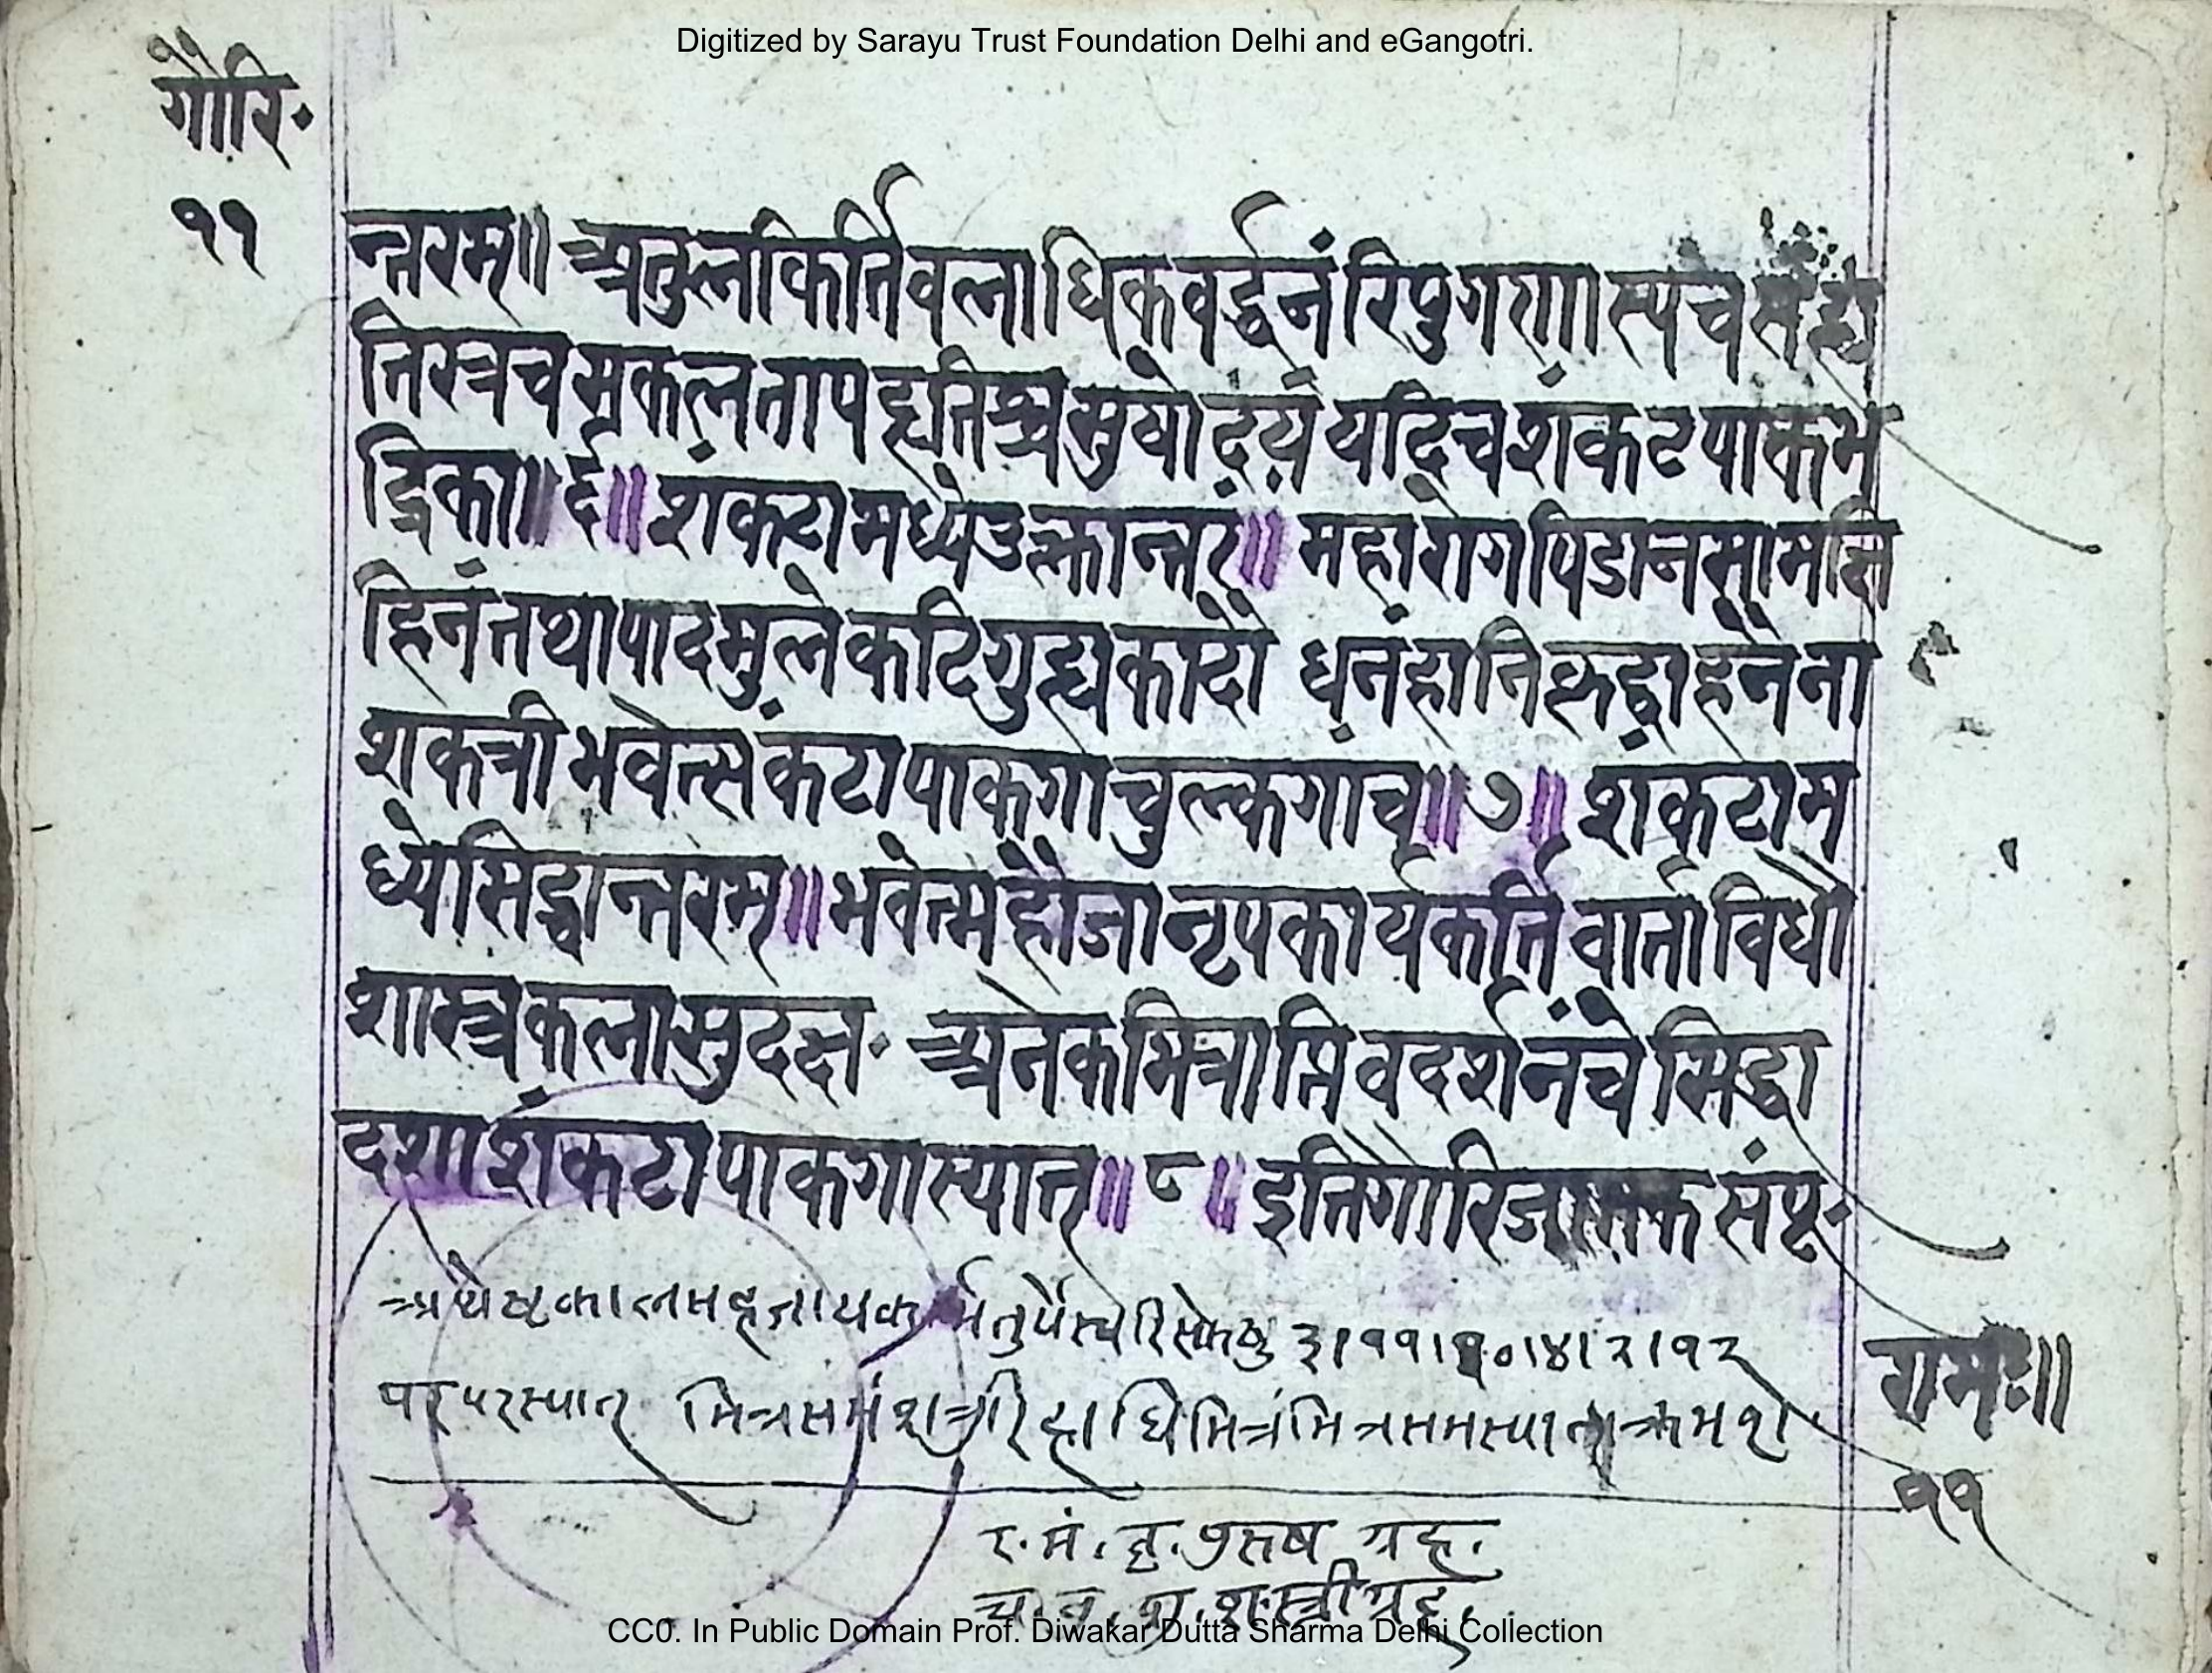 Digitized by Sarayu Trust Foundation Delhi and eGangotri.
गौरि॰
११
न्तरम्॥ अतुलकिर्तिवलाधिकवर्द्धनं रिपुगणास्यच
तिरत्रच सकलतापहृतिश्च सुयोदयं यदिच शंकटपाकभ
द्रिका॥ ६॥ शंकटामध्ये उल्कान्तरं॥ महारोगपिडान
हिनं तथा पादमुले कटिगुह्यकादौ धनंहानि
शकत्री भवेत्संकटापाकगा चुल्कगाच॥ ७॥ शंकटाम
ध्ये सिद्धान्तरम्॥ भवेन्महौजा नृपकार्यकर्त्ति वार्ताविधौ
शास्त्रकलासुदक्ष॰ अनेकमित्राप्तिवदर्शनंचे सिद्धा
दशा शंकटापाकगास्यात्॥ ८॥ इति गौरिजातक संपू॰
३।११।१०।४।२।१२
परपरस्यात् मित्रसमंशत्रु मित्रसमस्या क्रमशो
रामः॥
११
र. मं. बृ. पुरुष ग्रह.
स्त्रीग्रह.
CC0. In Public Domain Prof. Diwakar Dutta Sharma Delhi Collection